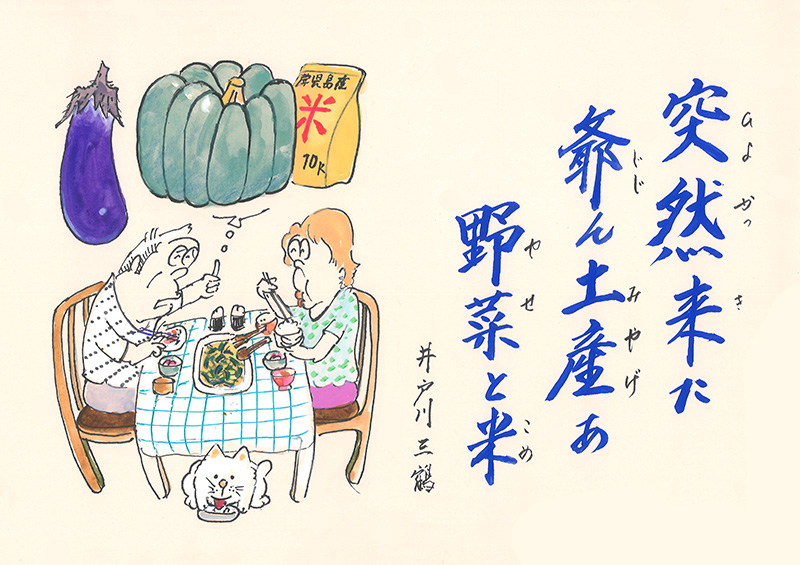 突然来た
ひよかっ き
爺ん土産あ
じじ みやげ
野菜と米
やせ こめ
井戸川三鶴
鹿児島産
米
10K